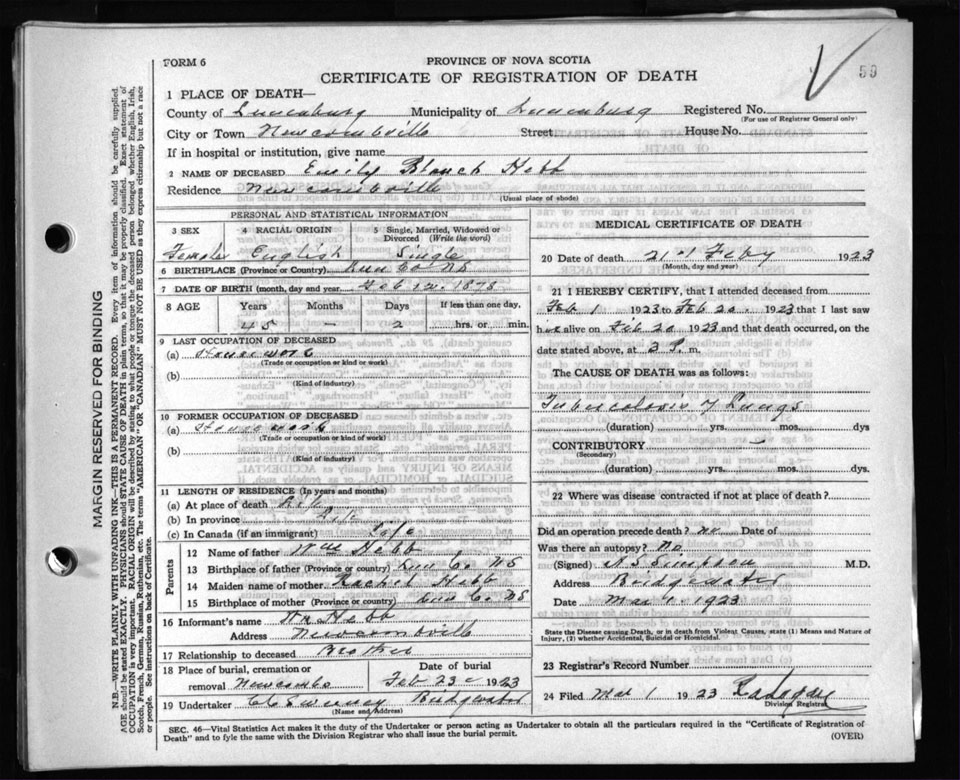 FORM 6
PROVINCE OF NOVA SCOTIA
CERTIFICATE OF REGISTRATION OF DEATH
59
1 PLACE OF DEATH—
County of Lunenburg Municipality of Lunenburg Registered No.
(For use of Registrar General only)
City or Town Newcombville Street House No.
If in hospital or institution, give name
2 NAME OF DECEASED Emily Blanch Hebb
Residence Newcombville
(Usual place of abode)
PERSONAL AND STATISTICAL INFORMATION
3 SEX 4 RACIAL ORIGIN 5 Single, Married, Widowed or Divorced (Write the word)
Female English Single
6 BIRTHPLACE (Province or Country) Lun Co NS
7 DATE OF BIRTH (month, day and year) Feb 1878
8 AGE Years Months Days If less than one day,
45 — 2 hrs. or min.
9 LAST OCCUPATION OF DECEASED
(a) Housework
(Trade or occupation or kind or work)
(b)
(Kind of industry)
10 FORMER OCCUPATION OF DECEASED
(a) Housework
(Trade or occupation or kind of work)
(b)
(Kind of industry)
11 LENGTH OF RESIDENCE (In years and months)
(a) At place of death Life
(b) In province Life
(c) In Canada (if an immigrant) Life
Parents
12 Name of father Wm Hebb
13 Birthplace of father (Province or country) Lun Co NS
14 Maiden name of mother Rachel Hebb
15 Birthplace of mother (Province or country) Lun Co NS
16 Informant's name Hebb
Address Newcombville
17 Relationship to deceased Brother
18 Place of burial, cremation or removal Newcombs
Date of burial
Feb 23 1923
19 Undertaker Bridgewater
(Name and address)
MEDICAL CERTIFICATE OF DEATH
20 Date of death 21st Feby 1923
(Month, day and year)
21 I HEREBY CERTIFY, that I attended deceased from
Feb 1 1923 to Feb 20, 1923 that I last saw
her alive on Feb 20 1923 and that death occurred, on the
date stated above, at 3 P. m.
The CAUSE OF DEATH was as follows:
Tuberculosis of Lungs
(duration) yrs. mos. dys
CONTRIBUTORY —
(Secondary)
(duration) yrs. mos. dys
22 Where was disease contracted if not at place of death?
Did an operation precede death? No Date of
Was there an autopsy? No
(Signed) Simpson M.D.
Address Bridgewater
Date Mar 1 1923
State the Disease causing Death, or in death from Violent Causes, state (1) Means and Nature of
Injury, (2) whether Accidental, Suicidal or Homicidal.
23 Registrar's Record Number
24 Filed Mar 1 1923
Division Registrar
SEC. 46—Vital Statistics Act makes it the duty of the Undertaker or person acting as Undertaker to obtain all the particulars required in the "Certificate of Registration of
Death" and to fyle the same with the Division Registrar who shall issue the burial permit.
(OVER)
MARGIN RESERVED FOR BINDING
N.B.—WRITE PLAINLY WITH UNFADING INK—THIS IS A PERMANENT RECORD. Every item of information should be carefully supplied.
AGE should be stated EXACTLY. PHYSICIANS should STATE CAUSE OF DEATH in plain terms, so that it may be properly classified. Exact statement of
OCCUPATION is very important. RACIAL ORIGIN will be described by stating to what people or tongue the deceased person belonged whether English, Irish,
Scotch, French, German, Russian, Ruthenian, etc. The terms "AMERICAN" OR "CANADIAN" MUST NOT BE USED as they express citizenship but not a race
or people. See instructions on back of Certificate.